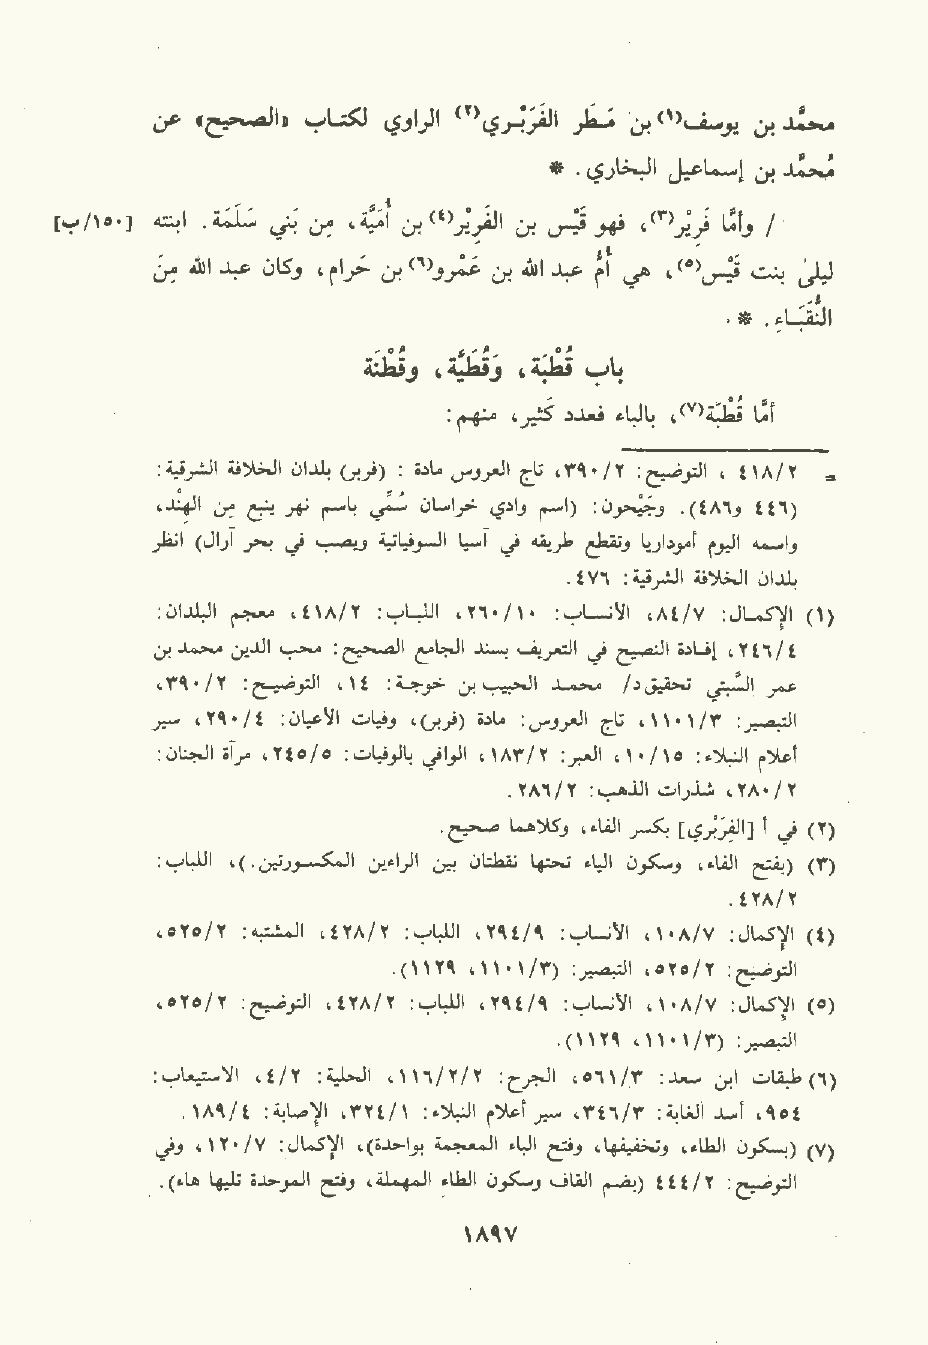 محمَّد بن يوسف(١) بن مَطَر الفَرَبْري(٢) الراوي لكتاب «الصحيح» عن
مُحمَّد بن إسماعيل البخاري. *
/ وأمَّا فَرِيْر(٣)، فهو قَيْس بن الفَرِيْر(٤) بن أُمَيَّة، مِن بَني سَلَمَة. ابنته [١٥٠/ب]
ليلىٰ بنت قَيْس(٥)، هي أُمّ عبد الله بن عَمْرو(٦) بن حَرام، وكان عبد الله مِن
النُّقَبَاءِ. *
باب قُطْبَة، وَقُطَيَّة، وقُطْنَة
أمَّا قُطْبَة(٧)، بالباء فعدد كَثير، منهم:
= ٤١٨/٢ ، التوضيح: ٣٩٠/٢، تاج العروس مادة : (فربر) بلدان الخلافة الشرقية:
(٤٤٦ و٤٨٦). وجَيْحون: (اسم وادي خراسان سُمِّي باسم نهر ينبع مِن الهِنْد،
واسمه اليوم أموداريا وتقطع طريقه في آسيا السوفياتية ويصب في بحر آرال) انظر
بلدان الخلافة الشرقية: ٤٧٦.
(١) الإكمال: ٨٤/٧، الأنساب: ٢٦٠/١٠، اللباب: ٤١٨/٢، معجم البلدان:
٢٤٦/٤، إفادة النصيح في التعريف بسند الجامع الصحيح: محب الدين محمد بن
عمر السَّبتي تحقيق د/ محمد الحبيب بن خوجة: ١٤، التوضيح: ٣٩٠/٢،
التبصير: ١١٠١/٣، تاج العروس: مادة (فربر)، وفيات الأعيان: ٢٩٠/٤، سير
أعلام النبلاء: ١٠/١٥، العبر: ١٨٣/٢، الوافي بالوفيات: ٢٤٥/٥، مرآة الجنان:
٢٨٠/٢، شذرات الذهب: ٢٨٦/٢.
(٢) في أ [الفِرَبْري] بكسر الفاء، وكلاهما صحيح.
(٣) (بفتح الفاء، وسكون الياء تحتها نقطتان بين الراءين المكسورتين.)، اللباب:
٤٢٨/٢.
(٤) الإكمال: ١٠٨/٧، الأنساب: ٢٩٤/٩، اللباب: ٤٢٨/٢، المشتبه: ٥٢٥/٢،
التوضيح: ٥٢٥/٢، التبصير: (١١٠١/٣، ١١٢٩).
(٥) الإكمال: ١٠٨/٧، الأنساب: ٢٩٤/٩، اللباب: ٤٢٨/٢، التوضيح: ٥٢٥/٢،
التبصير: (١١٠١/٣، ١١٢٩).
(٦) طبقات ابن سعد: ٥٦١/٣، الجرح: ١١٦/٢/٢، الحلية: ٤/٢، الاستيعاب:
٩٥٤، أسد الغابة: ٣٤٦/٣، سير أعلام النبلاء: ٣٢٤/١، الإصابة: ١٨٩/٤.
(٧) (بسكون الطاء، وتخفيفها، وفتح الباء المعجمة بواحدة)، الإكمال: ١٢٠/٧، وفي
التوضيح: ٤٤٤/٢ (بضم القاف وسكون الطاء المهملة، وفتح الموحدة تليها هاء).
١٨٩٧